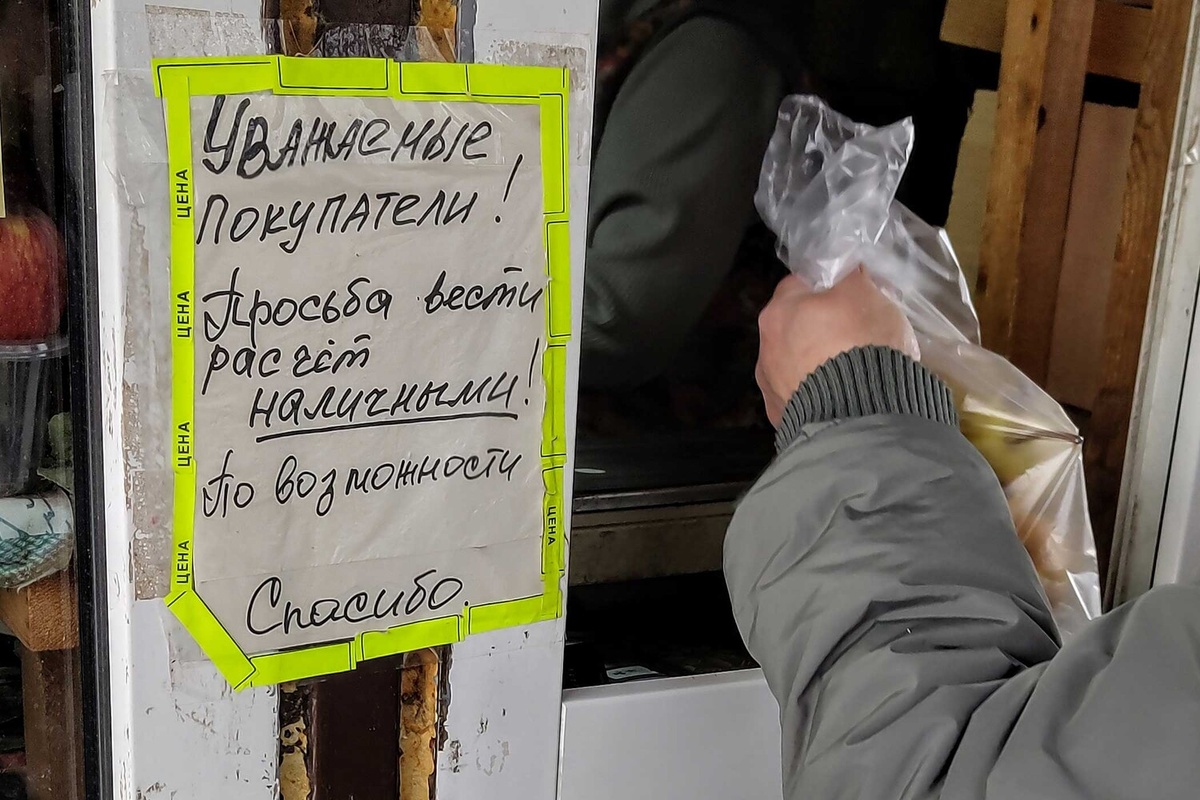 Уважаемые
покупатели!
Просьба вести
расчёт
наличными!
По возможности
Спасибо.
ЦЕНА
ЦЕНА
ЦЕНА
ЦЕНА
ЦЕНА